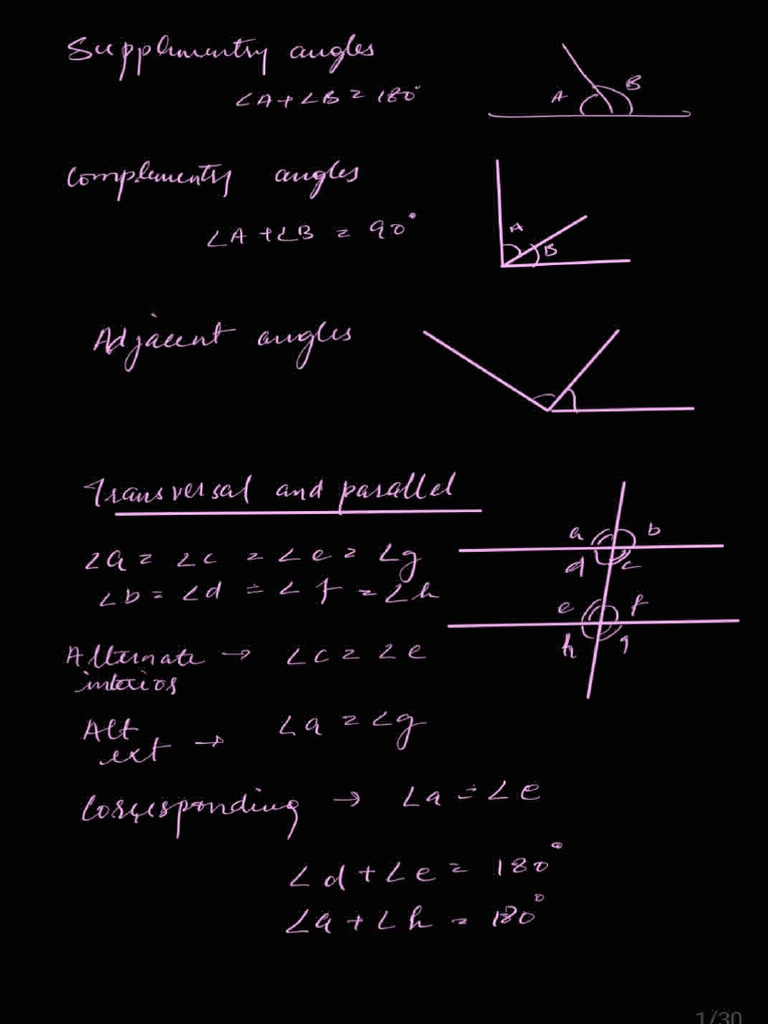 Supplementry angles
∠A+∠B = 180°
A B
Complementry angles
∠A+∠B = 90°
A
B
Adjacent angles
Transversal and parallel
a b
d c
∠a = ∠c = ∠e = ∠g
∠b = ∠d = ∠f = ∠h
e f
h g
Alternate → ∠c = ∠e
interior
Alt → ∠a = ∠g
ext
Corresponding → ∠a = ∠e
∠d + ∠e = 180°
∠a + ∠h = 180°
1/30